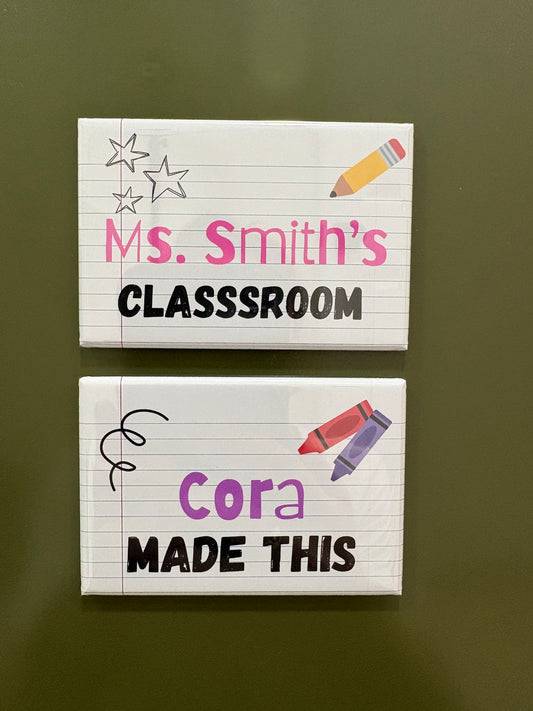 Ms. Smith's
CLASSSROOM
Cora
MADE THIS